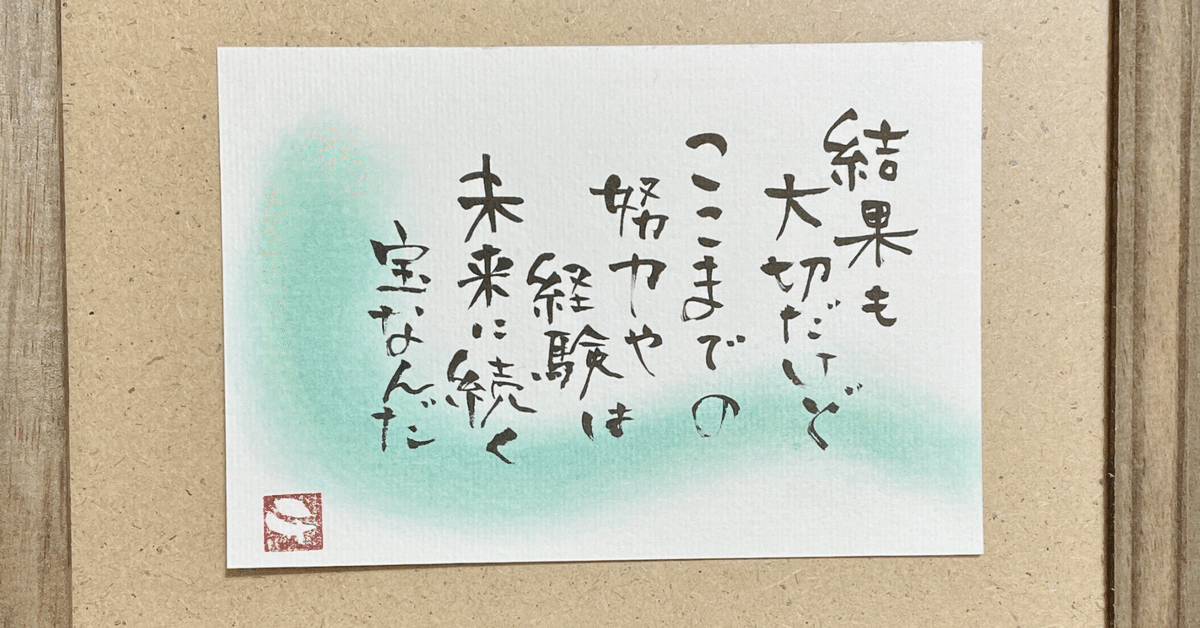 結果も
大切だけど
ここまでの
努力や
経験は
未来に続く
宝なんだ